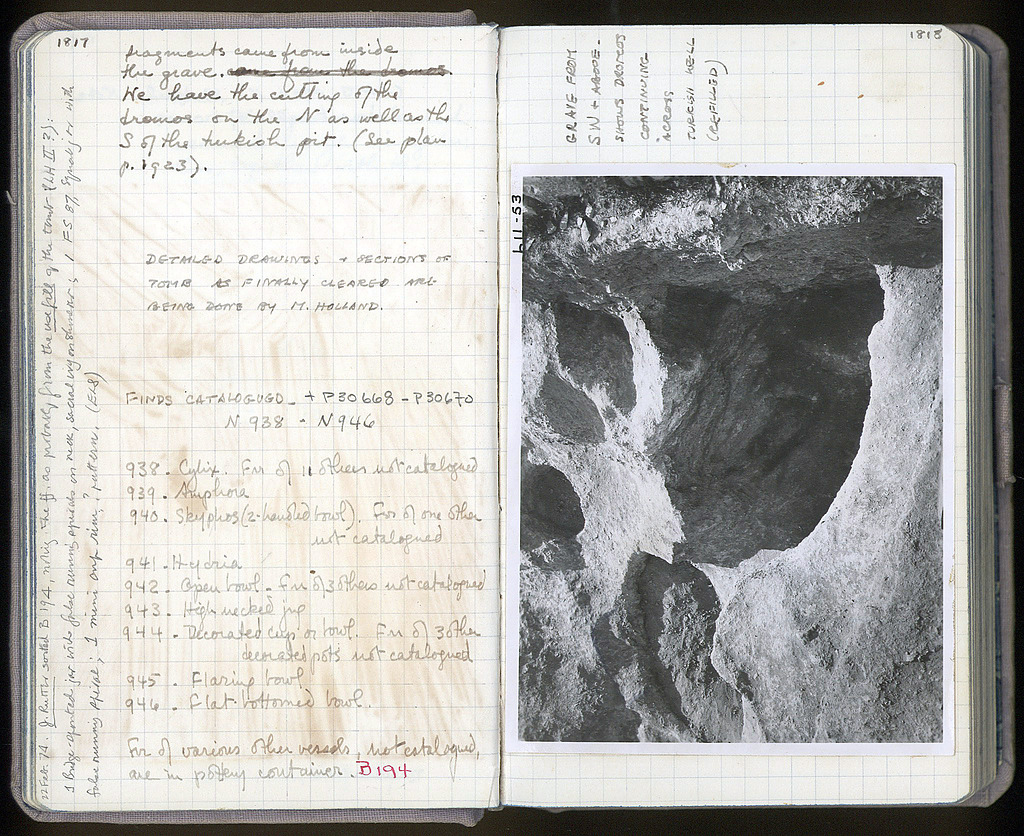 1817
fragments came from inside
the grave. came from the dromos.
We have the cutting of the
dromos on the N as well as the
S of the turkish pit. (See plan
p. 1923).
DETAILED DRAWINGS + SECTIONS OF
TOMB AS FINALLY CLEARED ARE
BEING DONE BY M. HOLLAND.
FINDS CATALOGUGD + P30668 - P30670
N 938 - N 946
938. Cylix. Frr of 11 others not catalogued
939. Amphora
940. Skyphos (2-handled bowl). Frr of one other
not catalogued
941. Hydria
942. Open bowl - Frr of 3 others not catalogued
943. High necked jug
944. Decorated cup or bowl. Frr of 3 other
decorated pots not catalogued
945. Flaring bowl
946. Flat bottomed bowl.
Frr of various other vessels, not catalogued,
are in pottery container. B 194
22 Feb. 74. J. Rutter sorted B 194, noting the ff. as probably from the use of the tomb (LH II ?):
1 Bridge-spouted jar with false running spirals on neck, ; 1 FS 87, Spirals with
false running spiral; 1 mini cup rim, ? pattern.
1818
GRAVE FROM
SW + ABOVE -
SHOWS DROMOS
CONTINUING
ACROSS
TURKISH WELL
(REFILLED)
LII-53